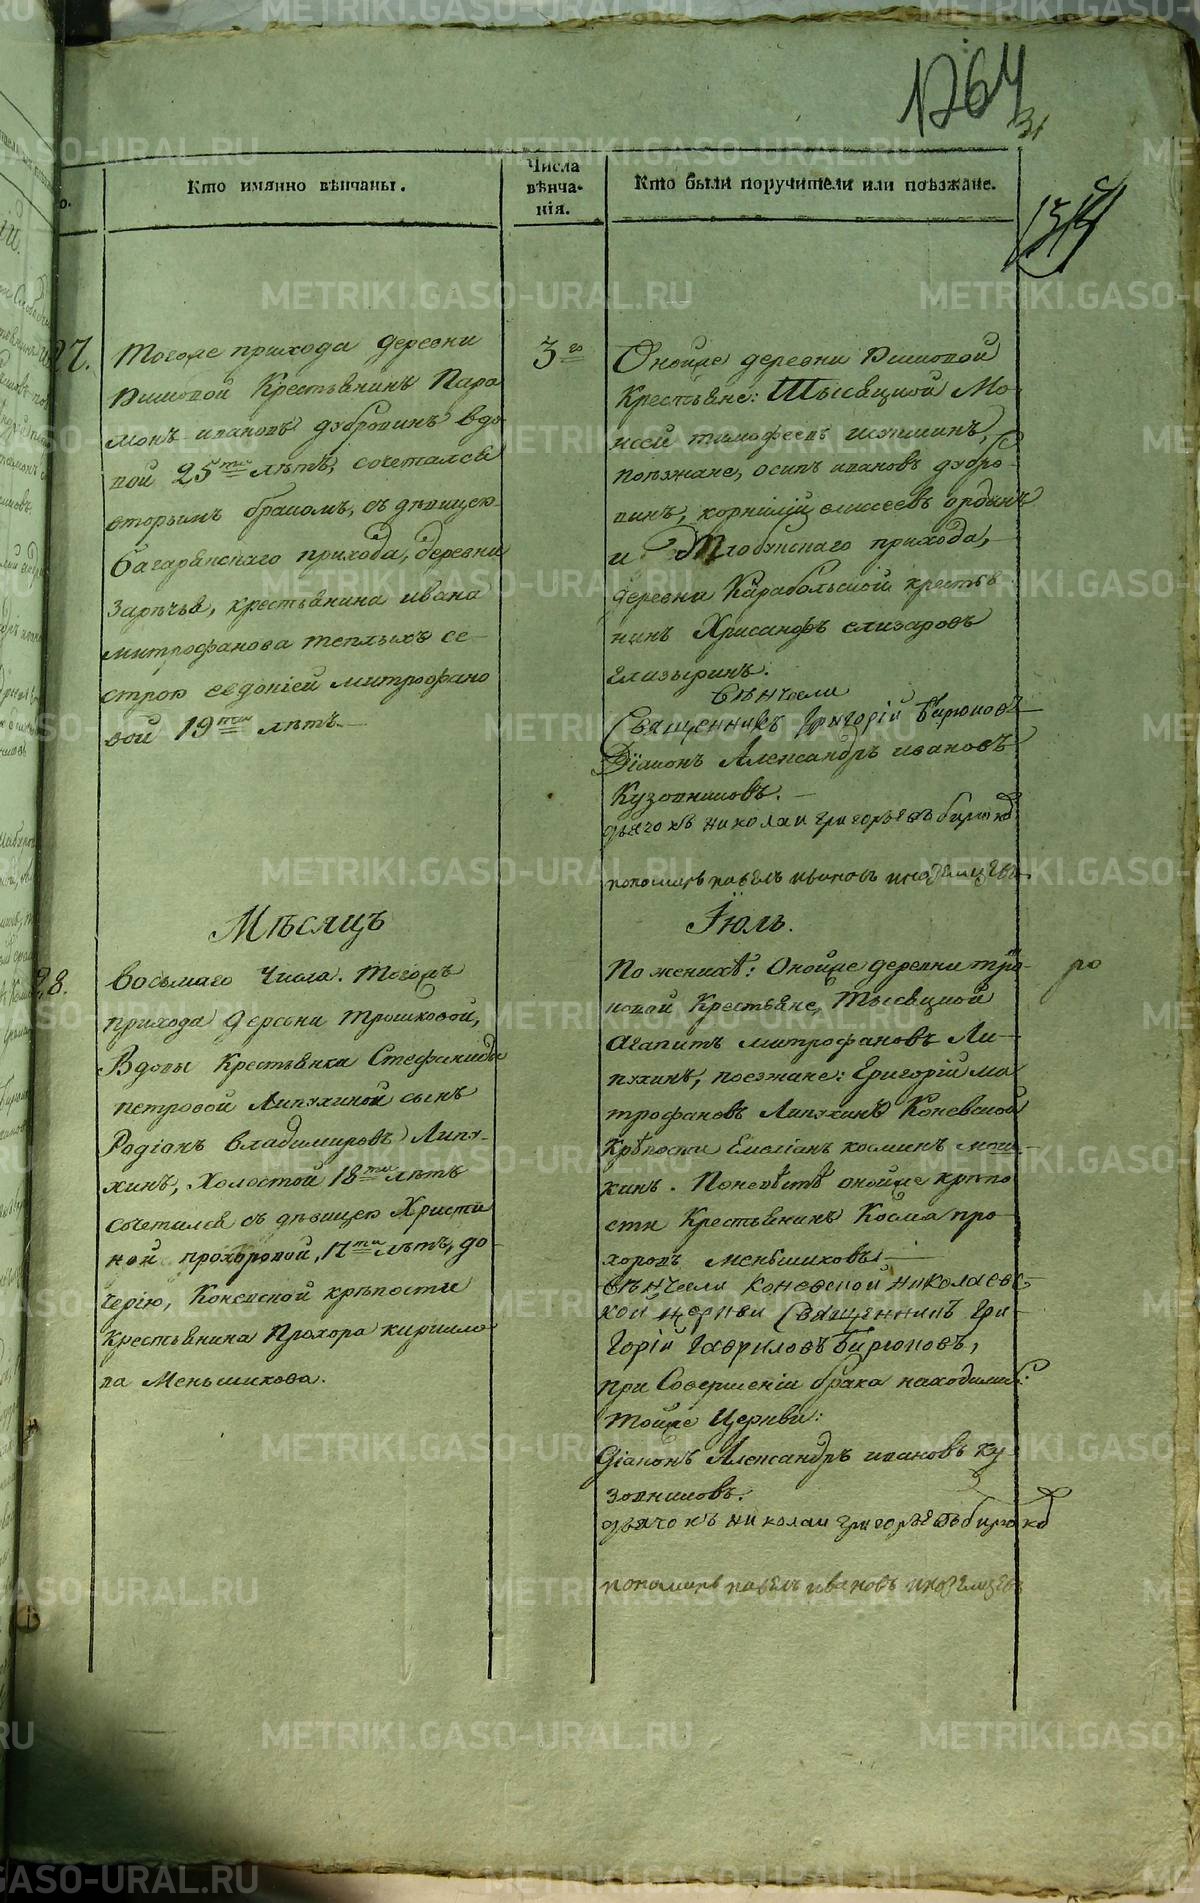 1764
31
Кто имянно вѣнчаны.
Числа
вѣнча-
нія.
Кто были поручители или поѣзжане.
27.
Тогоже прихода деревни
Крестьянинъ Пара
монъ ивановъ дубровинъ вдо
вой 25ти лѣтъ, сочетался
вторымъ бракомъ, съ дѣвицею
багаряцкаго прихода, деревни
Зарѣчья, крестьянина ивана
митрофанова теплыхъ се-
строю евдокіей митрофано
вой 19ти лѣтъ.
3го
Онойже деревни
Крестьяне: Тысяцкой Мо-
исей тимофеевъ
поѣзжане, осипъ ивановъ дубро-
винъ, корнилій елисеевъ
и прихода,
деревни Карабольской крестья
нинъ Хрисанфъ елизаровъ
глазыринъ.
вѣнчали
Священникъ Григорій Бирюковъ
Діаконъ Александръ ивановъ
Кузовниковъ.
дьячокъ николаи григорьевъ бирюковъ
пономарь павелъ ивановъ иноземцовъ
Мѣсяцъ
Іюль.
28.
Восьмаго Числа. Тогожъ
прихода деревни Трошковой,
Вдовы Крестьянки Стефаниды
петровой Липухиной сынъ
Родіонъ владимировъ Липу-
хинъ, Холостой 18ти лѣтъ
сочетался съ дѣвицею Христи
ной прохоровой, 17ти лѣтъ, до-
черію, Коневской крѣпости
Крестьянина Прохора кирило
ва Меньшикова.
По женихѣ: Онойже деревни тро
ро
ковой Крестьяне, Тысяцкой
Агапитъ митрофановъ Ли-
пухинъ, поезжане: Григорій ми
трофановъ Липухинъ Коневской
Крѣпости Емеліанъ косминъ
хинъ. По невѣстѣ онойже крѣпо
сти Крестьянинъ Косма про-
хоровъ меньшиковъ
вѣнчали коневской николаевс-
кой церкви Священникъ Гри-
горій Гавриловъ бирюковъ,
при Совершеніи брака находились:
тойже Церкви:
Діаконъ Александръ ивановъ ку
зовниковъ.
дьячокъ николаи григорьевъ бирюковъ
пономарь павелъ ивановъ иноземцовъ
METRIKI.GASO-URAL.RU